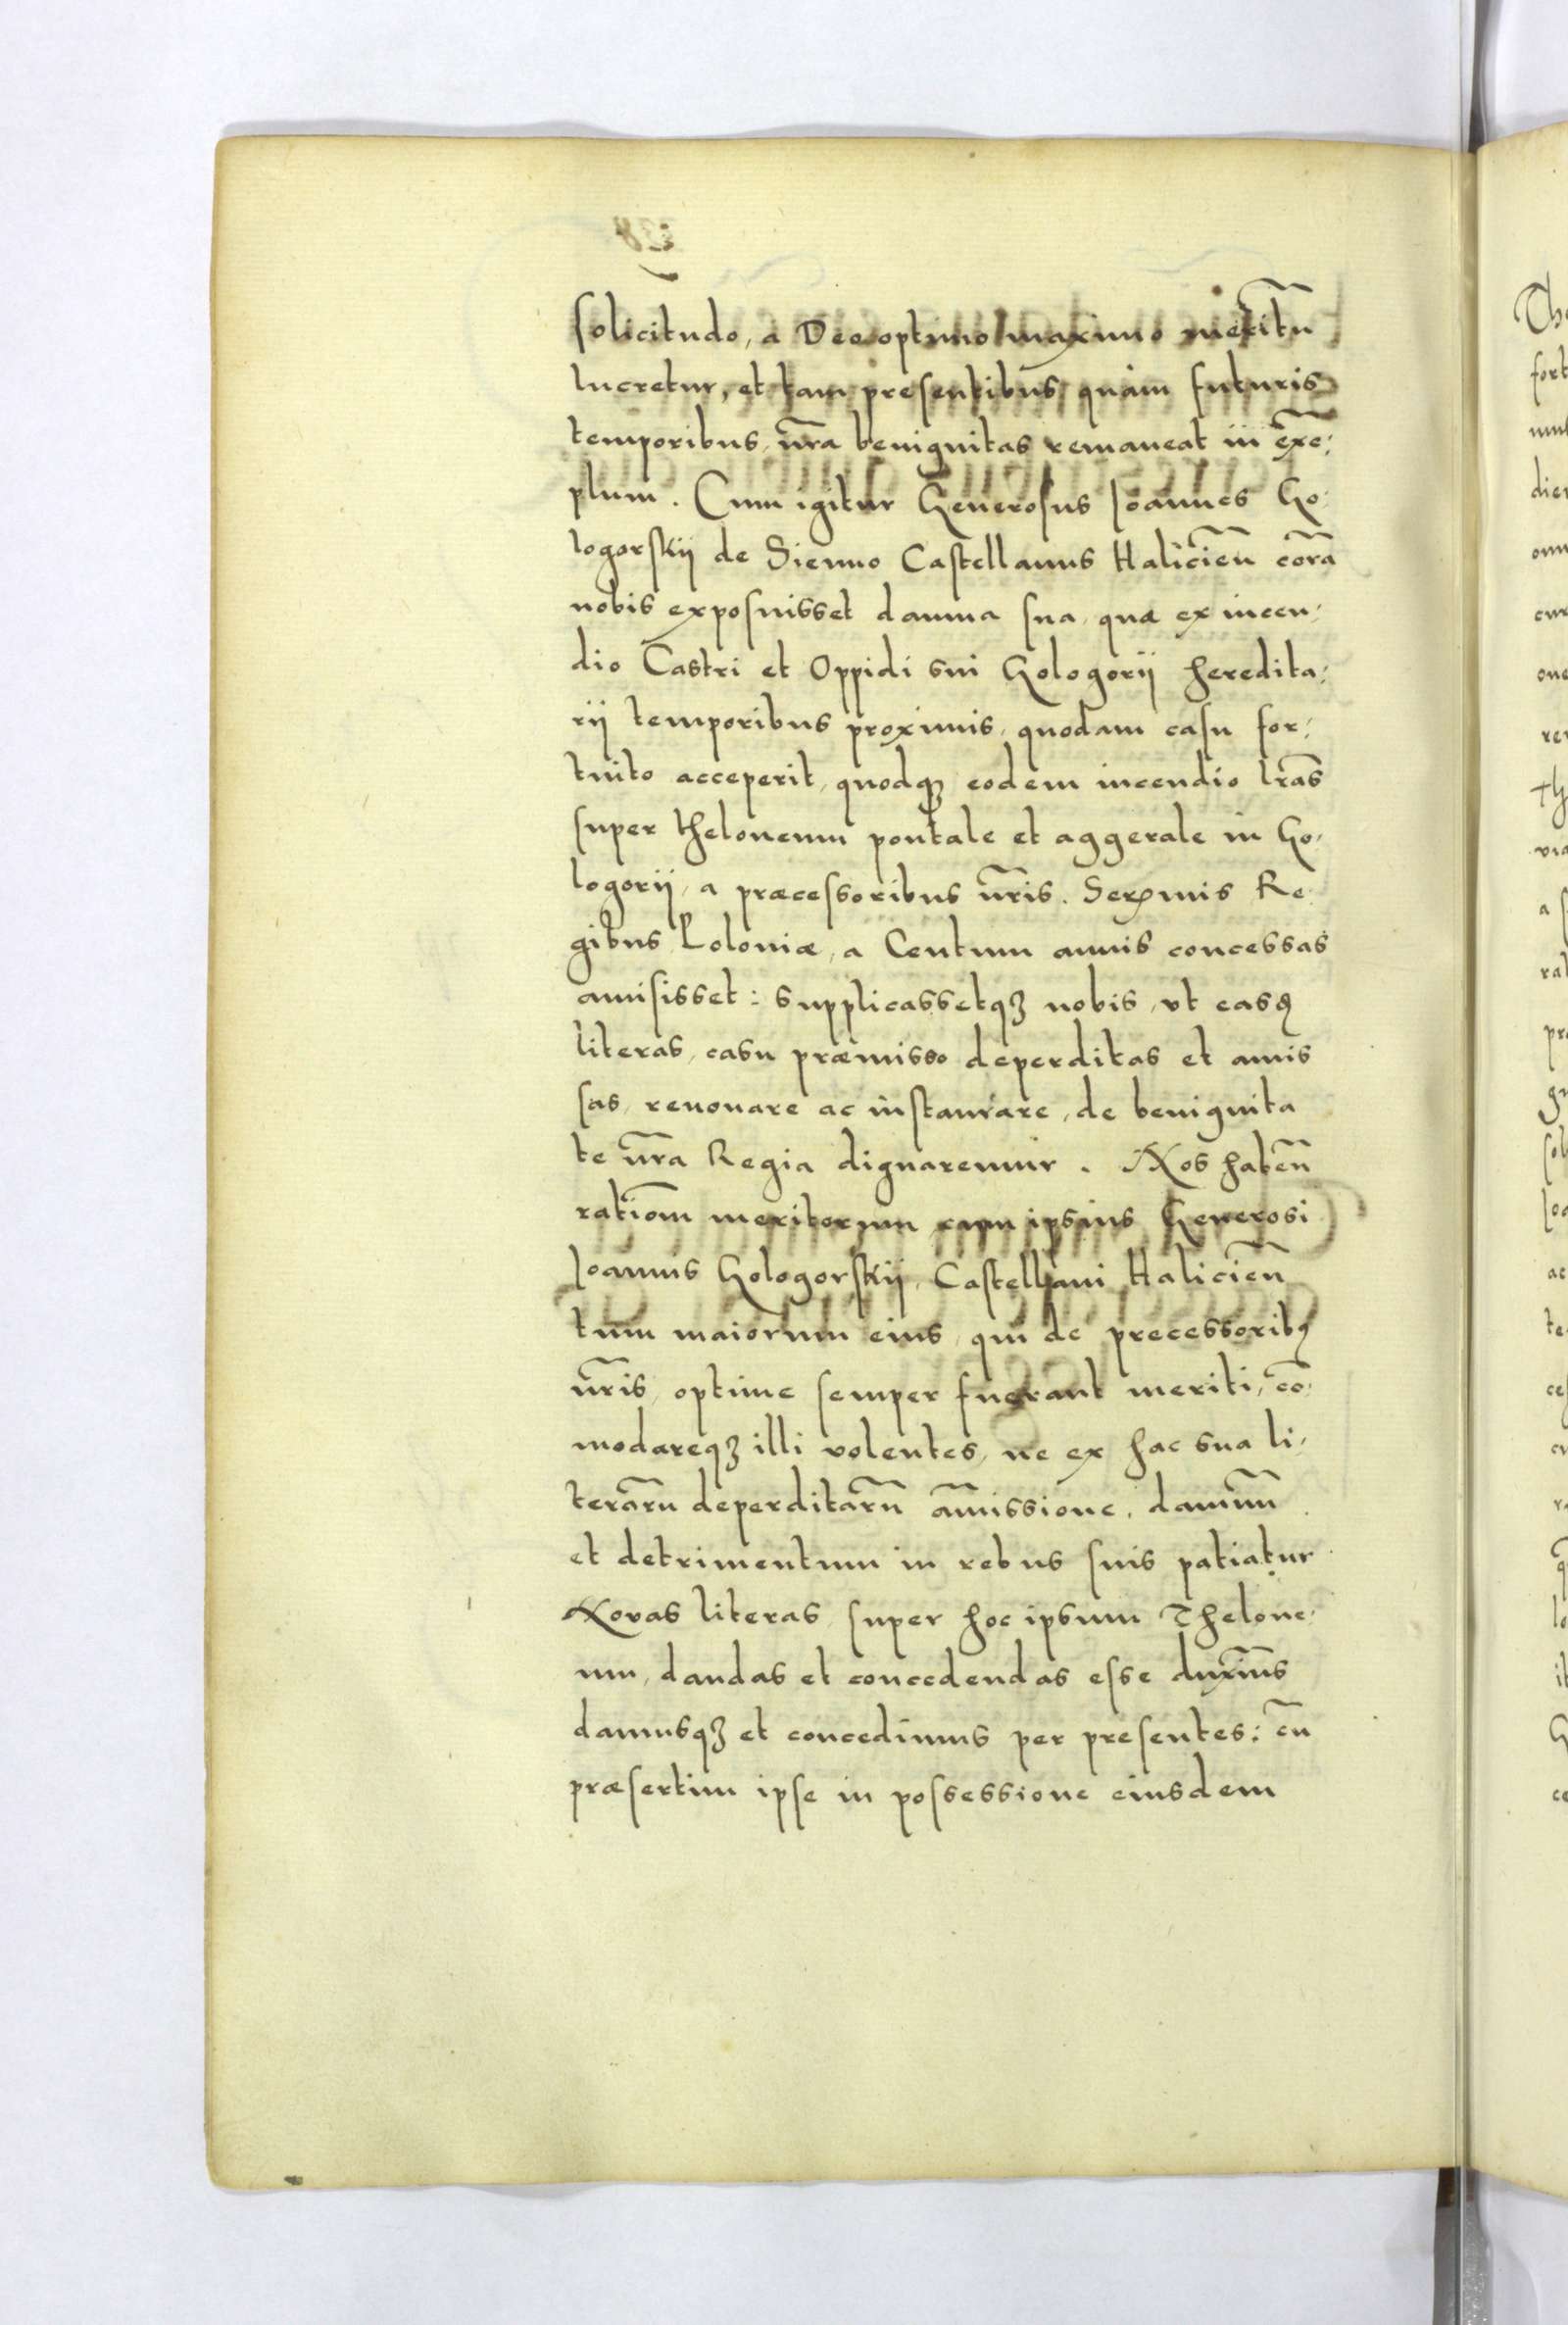 solicitudo, a Deo optimo maximo meritū
lucretur, et tam presentibus quàm futuris
temporibus, nr̄a benignitas remaneat in exē:
plum. Cum igitur Generosus Ioannes Go-
logorskij de Sienno Castellanus Haliciēn corā
nobis exposuisset damna sua, quæ ex incen-
dio Castri et Oppidi sui Gologorij heredita-
rij temporibus proximis, quodam casu for-
tuito acceperit, quodqꝫ eodem incendio lr̄as
super theloneum pontale et aggerale in Go-
logorij, a præcessoribus nr̄is. Serꝫmis Re-
gibus Poloniæ, a Centum annis concessas
amisisset: supplicassetqꝫ nobis, vt easꝺ
literas, casu præmisso deperditas et amis
sas, renouare ac instaurare, de benignita
te nr̄a Regia dignaremur. Nos habēn
ratiōm meritorum cum ipsius Generosi
Ioannis Gologorskij, Castellani Haliciēn
tum maiorum eius, qui de precessoribꝰ
nr̄is, optime semper fuerant meriti, cō-
modareqꝫ illi volentes, ne ex hac sua li-
terarū deperditarū āmissione, damnū
et detrimentum in rebus suis patiatur
Novas literas, super hoc ipsum Thelone-
um, dandas et concedendas esse duxim̄s
damusqꝫ et concedimus per presentes: cū
præsertim ipse in possessione eiusdem